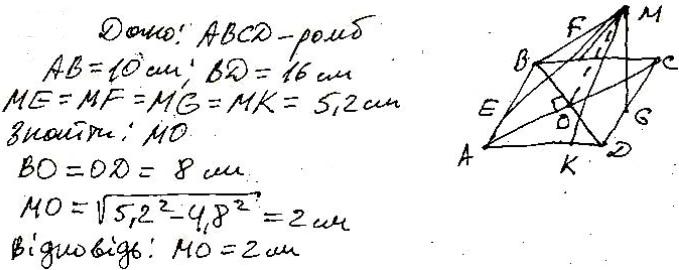 Дано: ABCD – ромб
AB = 10 см; BD = 16 см
ME = MF = MG = MK = 5,2 см
Знайти: MO
BO = OD = 8 см
MO = √5,2² – 4,8² = 2 см
Відповідь: MO = 2 см
M
F
B
C
E
O
G
A
K
D